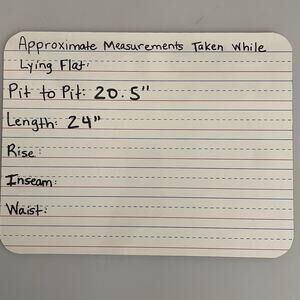 Approximate Measurements Taken While
Lying Flat:
Pit to Pit: 20.5"
Length: 24"
Rise:
Inseam:
Waist: